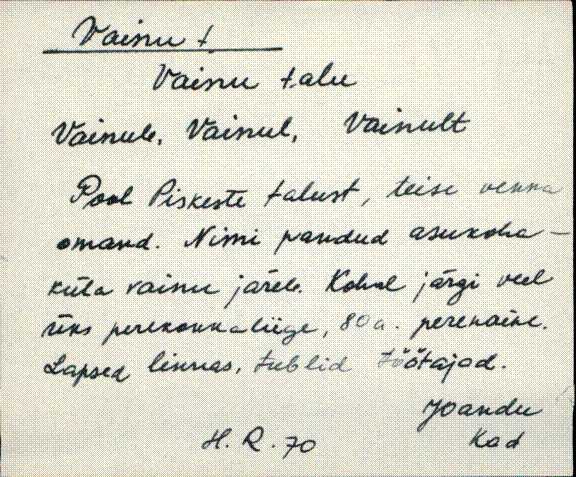 Vainu t.
Vainu talu
Vainule, Vainul, Vainult
Pool Piskeste talust, teise venna
omand. Nimi pandud asukoha -
küla vainu järele. Kohal järgi veel
üks perekonnaliige, 80a. perenaine.
Lapsed linnas, tublid töötajad.
Joandu
H. R. 70 Kad